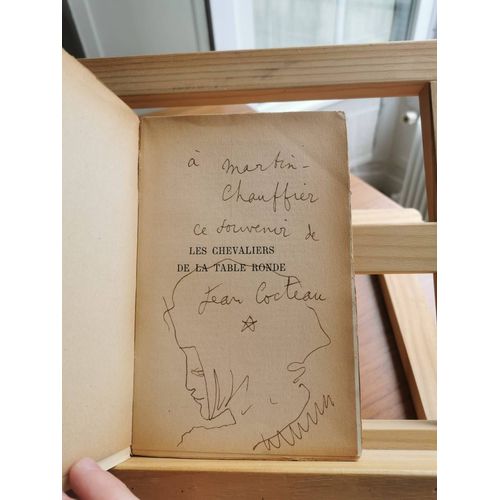 à Martin-
Chauffier
ce souvenir de
LES CHEVALIERS
DE LA TABLE RONDE
Jean Cocteau